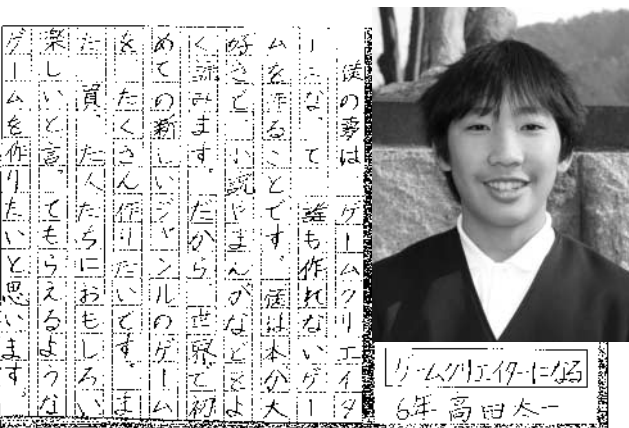 僕の夢は ゲームクリエイタ
ーになって 誰も作れないゲー
ムを作ることです。僕は本が大
好きで 小説やまんがなどをよ
く読みます。だから 世界で初
めての新しいジャンルのゲーム
を たくさん作りたいです。ま
た 買った人たちにおもしろい
楽しいと言ってもらえるような
ゲームを作りたいと思います。
ゲームクリエイターになる
6年 高田太一